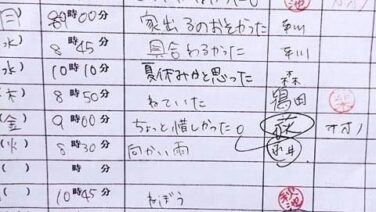 (月) 8時00分 家出るのおそかった 平川
(水) 8時45分 具合わるかった 平川
(水) 10時10分 夏休みかと思った 森
(木) 8時50分 ねていた 鶴田
(金) 9時00分 ちょっと惜しかった。 森
(火) 8時30分 向かい雨
( ) 時 分
( ) 10時45分 ねぼう 菊池